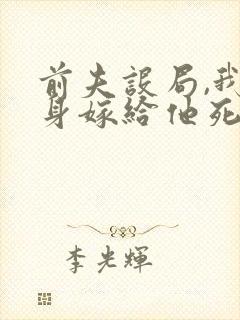 前夫設局,我
身嫁給他死
李光輝